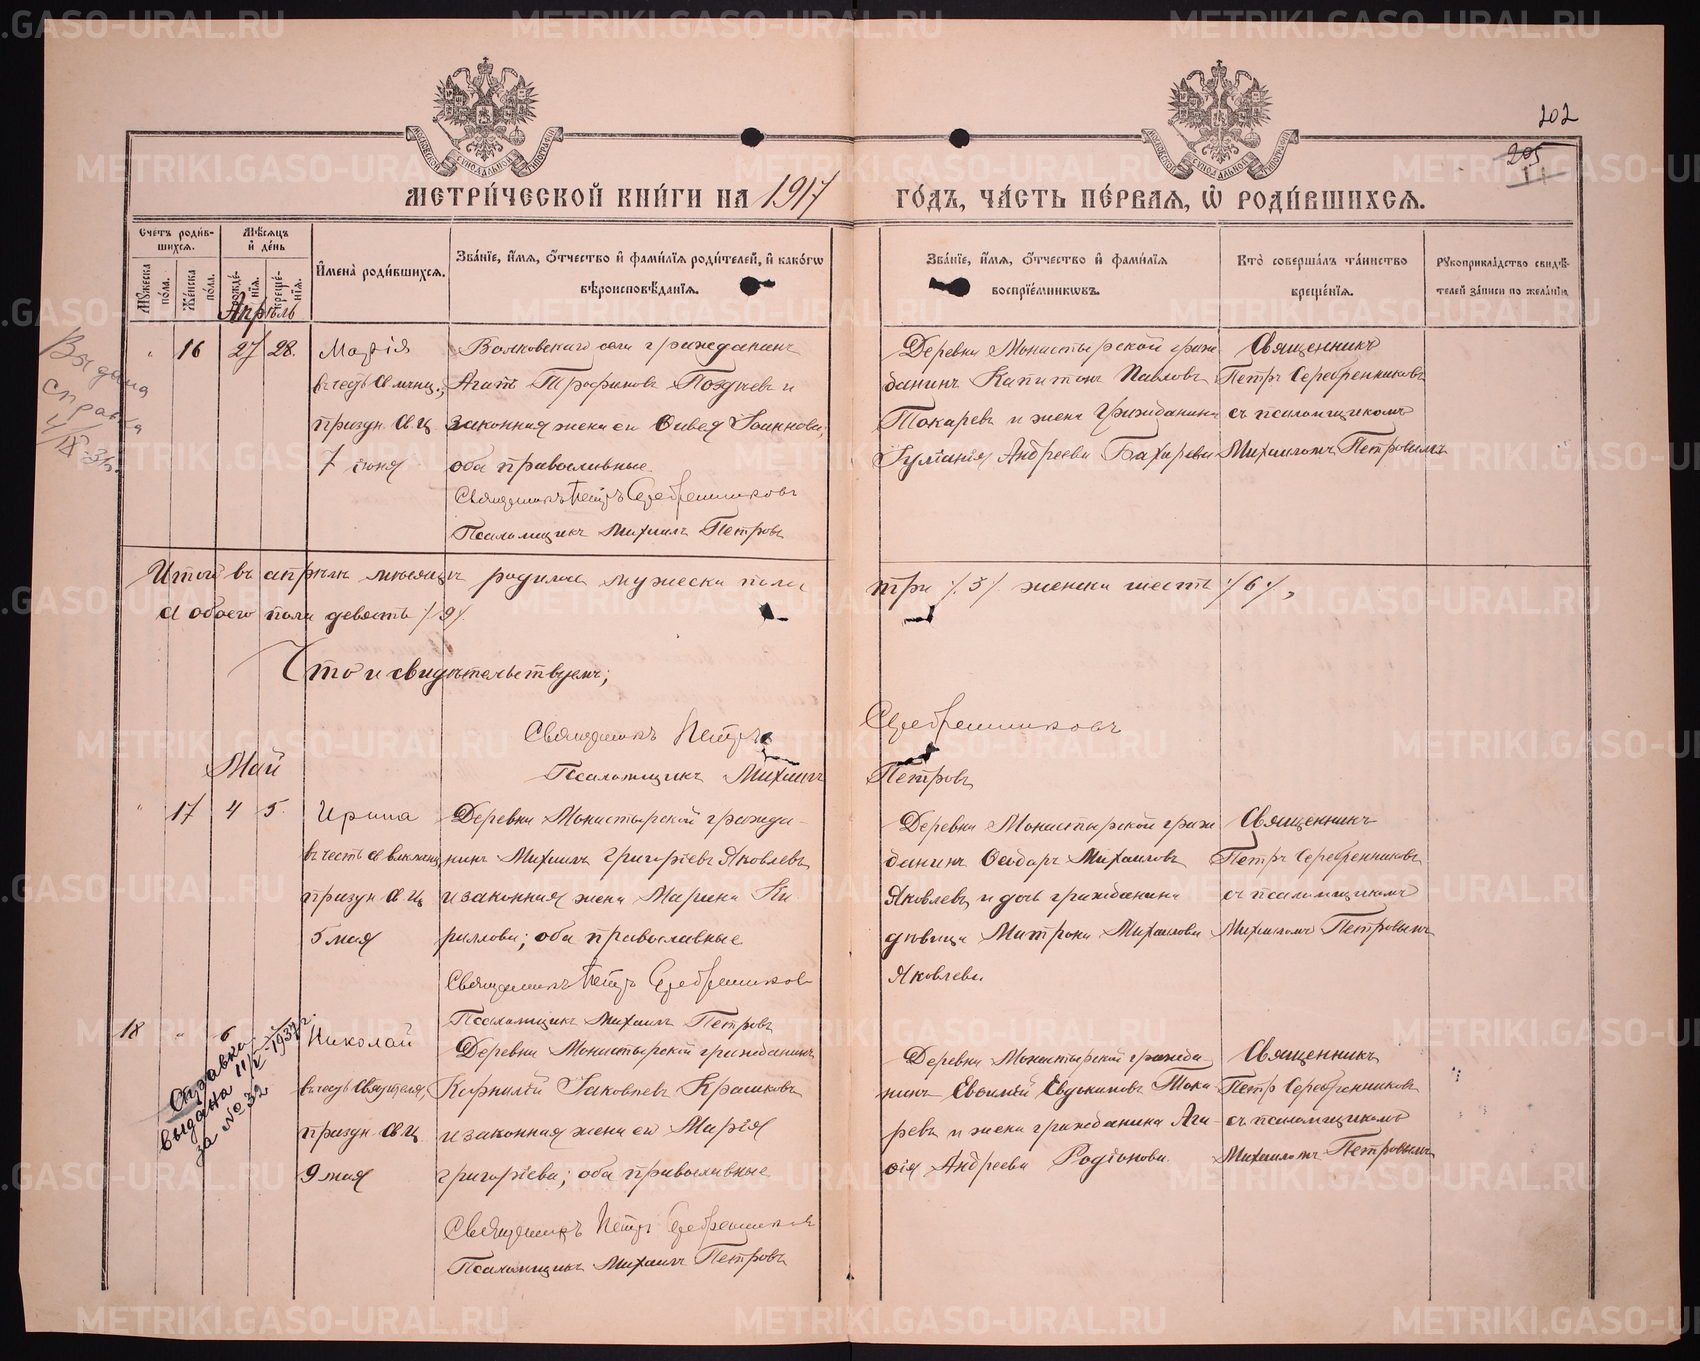 202
205
МЕТРИ́ЧЕСКОЙ КНИ́ГИ НА 1917 ГО́ДЪ, ЧА́СТЬ ПЕ́РВАЯ, Ѡ҆ РОДИ́ВШИХСЯ.
Сче́тъ роди́в-
шихся.
Мѣ́сяцъ
и҆ де́нь
Мꙋ́жеска
по́ла.
Же́нска
по́ла.
рожде́-
нїя.
креще́-
нїя.
И҆мена̀ роди́вшихся.
Зва́нїе, и҆́мя, ѻ҆́тчество и҆ фамї́лїя роди́телей, и҆ како́гѡ
вѣроисповѣ́данїя.
Зва́нїе, и҆́мя, ѻ҆́тчество и҆ фамї́лїя
воспрїе́мникѡвъ.
Кто̀ соверша́лъ та́инство
креще́нїя.
Рꙋкоприкла́дство свидѣ́-
телей за́писи по жела́нїю
Апрѣль
Выдана
справка
IX-35.
" 16 27 28.
Марія
въ честь св. мчнц.,
празун. св. ц.
7 іюня
Волковскаго села гражданинъ
Агапъ Трофимовъ Позднѣвъ и
законная жена его Іоаннова,
оба православные.
Священникъ Петръ Серебренниковъ
Псаломщикъ Михаилъ Петровъ
Деревни Монастырской граж-
данинъ Капитонъ Павловъ
Токаревъ и жена гражданина
Іуліанія Андреева Бахарева
Священникъ
Петръ Серебренниковъ
съ псаломщикомъ
Михаиломъ Петровымъ
Итого въ апрѣлѣ мѣсяцѣ родилось мужеска пола три /3/. женска шесть /6/,
а обоего пола девять /9/.
Что и свидѣтельствуемъ;
Священникъ Петръ Серебренниковъ
Псаломщикъ Михаилъ Петровъ
Май
" 17 4 5.
Ирина
въ честь св. вликомчц
празун св. ц.
5 мая
Деревни Монастырской гражда-
нинъ Михаилъ Григоріевъ Яковлевъ
и законная жена Марина Ки-
риллова; оба православные
Священникъ Петръ Серебренниковъ
Псаломщикъ Михаилъ Петровъ
Деревни Монастырской граж-
данинъ Ѳеодоръ Михаиловъ
Яковлевъ и дочь гражданина
дѣвица Матрона Михаилова
Яковлева.
Священникъ
Петръ Серебренниковъ
съ псаломщикомъ
Михаиломъ Петровымъ
18 " 6
Справка
выдана 11/V-1937 г.
за № 32
Николай
въ честь Святителя,
празун. св. ц.
9 мая
Деревни Монастырской гражданинъ
Корнилій Іаковлевъ Крашковъ
и законная жена его Марія
Григоріева; оба православные
Священникъ Петръ Серебренниковъ
Псаломщикъ Михаилъ Петровъ
Деревни Монастырской гражда-
нинъ Евѳимій Евдокимовъ Тока-
ревъ и жена гражданина Ага-
ѳія Андреева Родіонова.
Священникъ
Петръ Серебренниковъ
съ псаломщикомъ
Михаиломъ Петровымъ
METRIKI.GASO-URAL.RU